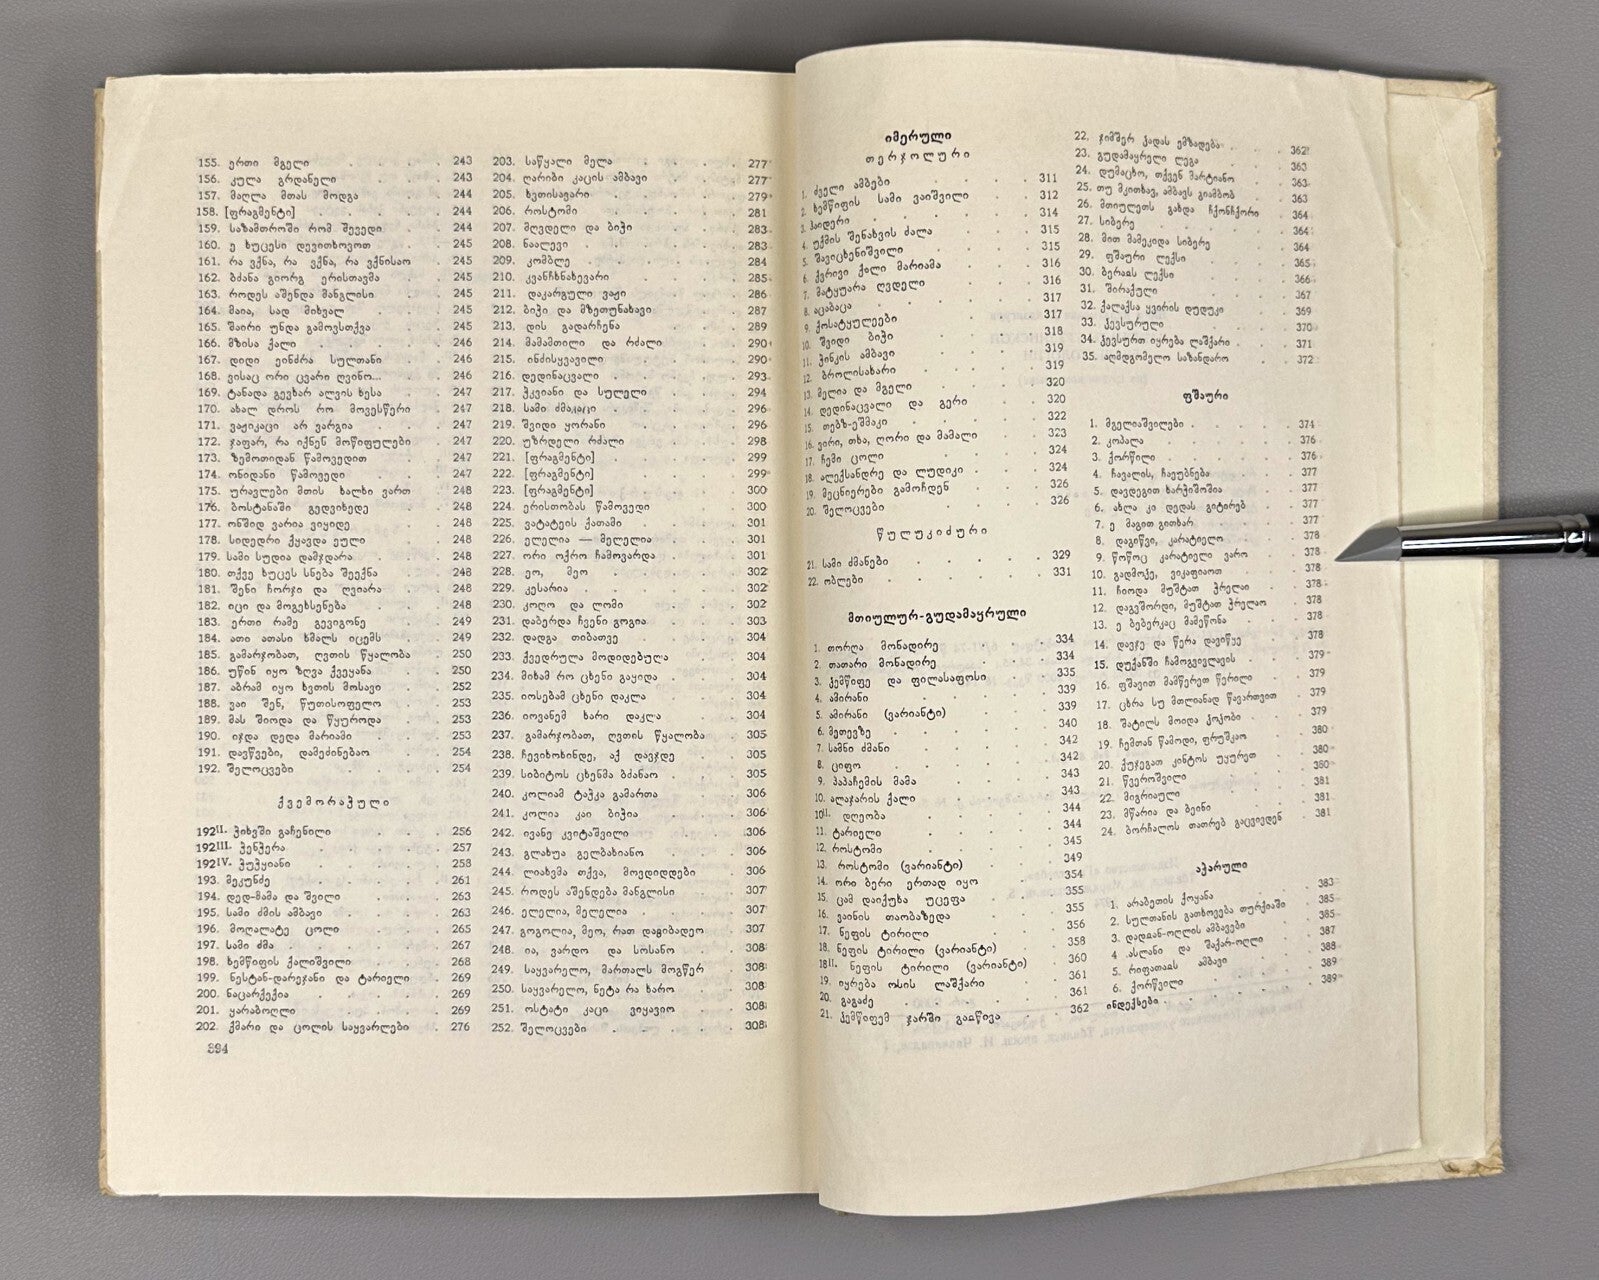 155. ერთი მგელი . . . . 243
156. კულა გრდანელი . . . 243
157. მაღლა მთას მოდგა . . 244
158. [ფრაგმენტი] . . . . 244
159. საზამთროში რომ შევედი . 244
160. ე ხუცესი დევითხოვოთ . 245
161. რა ვქნა, რა ვქნა, რა ვქნისაო 245
162. ბძანა გიორგ ერისთავმა . 245
163. როდეს აშენდა მანგლისი . 245
164. მაია, სად მიხვალ . . 245
165. შაირი უნდა გამოვსთქვა . 245
166. მზისა ქალი . . . . 246
167. დიდი ეინძრა სულთანი . 246
168. ვისაც ორი ცვარი ღვინო... . 246
169. ტანადა გევხარ ალვის ხესა . 247
170. ახალ დროს რო მოვესწერი . 247
171. ვაჟიკაცი არ ვარგია . . 247
172. ჯაფარ, რა იქნენ მოწიფულები 247
173. ზემოთიდან წამოვედით . 247
174. ონიდანი წამოვედი . . 247
175. ურავლები მთის ხალხი ვართ 248
176. ბოსტანაში გედვიხედე . 248
177. ონშიდ ვარია ვიყიდე . 248
178. სიდედრი ქყავდა ეული . 248
179. სამი სუდია დამჯდარა . 248
180. თქვე ხუცეს სნება შეექნა . 248
181. შენი ჩორჯი და ღვიარა . 248
182. იცი და მოგეხსენება . 248
183. ერთი რამე გევიგონე . 249
184. ათი ათასი ხმალს იცემს . 249
185. გამარჯობათ, ღვთის წყალობა 250
186. უწინ იყო ზღვა ქვეყანა . 250
187. აბრამ იყო ხვთის მოსავი . 252
188. ვაი შენ, წუთისოფელო . 253
189. მას შიოდა და წყუროდა . 253
190. იჯდა დედა მარიამი . . 253
191. დავწვები, დამეძინებაო . 254
192. შელოცვები . . . . 254
ქვემორაჭული
192II. ჭიხეში გაჩენილი . . . 256
192III. ჭენჭერა . . . . 257
192IV. ჭუჭყიანი . . . . 258
193. მეკუნძე . . . . 261
194. დედ-მამა და შვილი . . 263
195. სამი ძმის ამბავი . . 263
196. მოღალატე ცოლი . . 265
197. სამი ძმა . . . . 267
198. ხემწიფის ქალიშვილი . . 268
199. ნესტან-დარეჯანი და ტარიელი . 269
200. ნაცარქექია . . . . 269
201. ყარაბოღლი . . . . 269
202. ქმარი და ცოლის საყვარლები . 276
394
203. საწყალი მელა . . . . 277
204. ღარიბი კაცის ამბავი . . 277
205. ხვთისავარი . . . . 279
206. როსტომი . . . . 281
207. მღვდელი და ბიჭი . . . 283
208. ნაალევი . . . . 283
209. კომბლე . . . . 284
210. კვანჩხნახევარი . . . 285
211. დაკარგული ვაჟი . . . 286
212. ბიჭი და მზეთუნახავი . . 287
213. დის გადარჩენა . . . 289
214. მამამთილი და რძალი . . 290
215. ინძისყვავილი . . . . 290
216. დედინაცვალი . . . . 293
217. ჭკვიანი და სულელი . . 294
218. სამი ძმაკაცი . . . . 296
219. შვიდი ყორანი . . . . 296
220. უზრდელი რძალი . . . 298
221. [ფრაგმენტი] . . . . 299
222. [ფრაგმენტი] . . . . 299
223. [ფრაგმენტი] . . . . 300
224. ერისთობას წამოვედი . . 300
225. ვატატეის ქათამი . . . 301
226. ელელია — მელელია . . 301
227. ორი ოქრო ჩამოვარდა . . 301
228. ეო, მეო . . . . 302
229. კესარია . . . . 302
230. კოღო და ლომი . . . 302
231. დაბერდა ჩვენი გოგია . . 303
232. დადგა თიბათვე . . . 304
233. ქვედრულა მოდიდებულა . . 304
234. მიხამ რო ცხენი გაყიდა . . 304
235. იოსებამ ცხენი დაკლა . . 304
236. იოვანემ ხარი დაკლა . . 304
237. გამარჯობათ, ღვთის წყალობა . 305
238. ჩევიხოხინდე, აქ დავჯდე . 305
239. სიბიტოს ცხენმა ბძანაო . . 305
240. კოლიამ ტაჰკა გამართა . . 306
241. კოლია კაი ბიჭია . . . 306
242. ივანე კვიტაშვილი . . . 306
243. გლახუა გელბახიანო . . 306
244. ლიახვმა თქვა, მოვდიდდები . 306
245. როდეს აშენდება მანგლისი . 307
246. ელელია, მელელია . . . 307
247. გოგოლია, მეო, რათ დაგიბადეო 307
248. ია, ვარდო და სოსანო . . 308
249. საყვარელო, მართალს მოგწერ . 308
250. საყვარელო, ნეტა რა ხარო . 308
251. ოსტატი კაცი ვიყავიო . . 308
252. შელოცვები . . . . 308
იმერული
თერჯოლური
1. ძველი ამბები . . . . 311
2. ხემწიფის სამი ვაიშვილი . 312
3. ჰაიდერი . . . . 314
4. უქმის შენახვის ძალა . . 315
5. შავიცხენიშვილი . . . 315
6. ქვრივი ქალი მარიამა . . 316
7. მატყუარა ღვდელი . . 316
8. აცაბაცა . . . . 317
9. ქოსატყულეები . . . 317
10. შვიდი ბიჭი . . . . 318
11. ჭინკის ამბავი . . . 319
12. ბროლისახარი . . . 319
13. მელია და მგელი . . . 320
14. დედინაცვალი და გერი . 320
15. თებზ-ეშმაკი . . . 322
16. ვირი, თხა, ღორი და მამალი . 323
17. ჩემი ცოლი . . . . 324
18. ალექსანდრე და ლუდიკი . 324
19. მეცნიერები გამოჩდენ . . 326
20. შელოცვები . . . . 326
წულუკიძური
21. სამი ძმანები . . . . 329
22. ობლები . . . . 331
მთიულურ-გუდამაყრული
1. თორღა მონადირე . . . 334
2. თათარი მონადირე . . . 334
3. ჴემწიფე და ფილასაფოსი . 335
4. ამირანი . . . . 339
5. ამირანი (ვარიანტი) . . 339
6. მეთევზე . . . . 340
7. სამნი ძმანი . . . . 342
8. ციფო . . . . 342
9. პაპაჩემის მამა . . . 343
10. ალაჯარის ქალი . . . 343
10II. დღეობა . . . . 344
11. ტარიელი . . . . 344
12. როსტომი . . . . 345
13. როსტომი (ვარიანტი) . . 349
14. ორი ბერი ერთად იყო . . 354
15. ცამ დაიქუხა უცეფა . . 355
16. ვაინის თაობაზედა . . 355
17. ნეფის ტირილი . . . 356
18. ნეფის ტირილი (ვარიანტი) . 358
18II. ნეფის ტირილი (ვარიანტი) . 360
19. იყრება ოსის ლაშქარი . . 361
20. გაგაძე . . . . 361
21. ჴემწიფემ ჯარში გაგწივა . . 362
22. ჯიმშერ ჭადას ემზადება . . 362
23. გუდამაყრელი ლეგა . . 363
24. დუმაცხო, თქვენ მარტიანო . 363
25. თუ მკითხავ, ამბავს გიამბობ . 363
26. მთიულეთს გახდა ჩქონჩქორი . 364
27. სიბერე . . . . 364
28. მით მამეკიდა სიბერე . . 364
29. ფშაური ლექსი . . . 365
30. ბერაის ლექსი . . . 366
31. შირაქული . . . . 367
32. ქალაქსა ყვირის დუდუკი . 369
33. ჴევსურული . . . . 370
34. ჴევსურთ იყრება ლაშქარი . . 371
35. აღმდგომელო საზანდარო . 372
ფშაური
1. მგელიაშვილები . . . 374
2. კოპალა . . . . 376
3. ქორწილი . . . . 376
4. ჩავალის, ჩავუბნება . . 377
5. დავდეგით ხარჭიშოშია . . 377
6. ახლა კი დედას გიტირებ . 377
7. ე მაგით გითხარ . . . 377
8. დაგიწვი, კარატიელო . . 378
9. წოწოც კარატიელი ვარო . 378
10. გადმოქე, ვიკაფიაოთ . . 378
11. ჩიოდა მუშტათ ჭრელაი . 378
12. დაგვშორდი, მუშტათ ჭრელაო . 378
13. ე ბებერკაც მამეწონა . . 378
14. დავჯე და წერა დავიწყე . 378
15. დუქანში ჩამოგვივლავის . 379
16. ფშავით მამწერეთ წერილი . 379
17. ცხრა სუ მთლიანად წავართვით 379
18. შატილს მოიდა ჯოკობი . . 379
19. ჩემთან წამოდი, ფრუშკაო . 380
20. ქუჯეგათ კინტოს უყურეთ . 380
21. წვეროშვილი . . . 381
22. მიგრიაული . . . . 381
23. მწარია და ბეინი . . . 381
24. ბორჩალოს თათრებ გაცვივდენ . 381
აჭარული
1. არაბეთის ქოყანა . . 383
2. სულთანის გათხოვება თურქიაში . 385
3. დადიან-ოღლის ამბავები . 385
4. ასლანი და შაქარ-ოღლი . 387
5. რიფათაის ამბავი . . 388
6. ქორწილი . . . . 389
ინდექსები . . . . 389